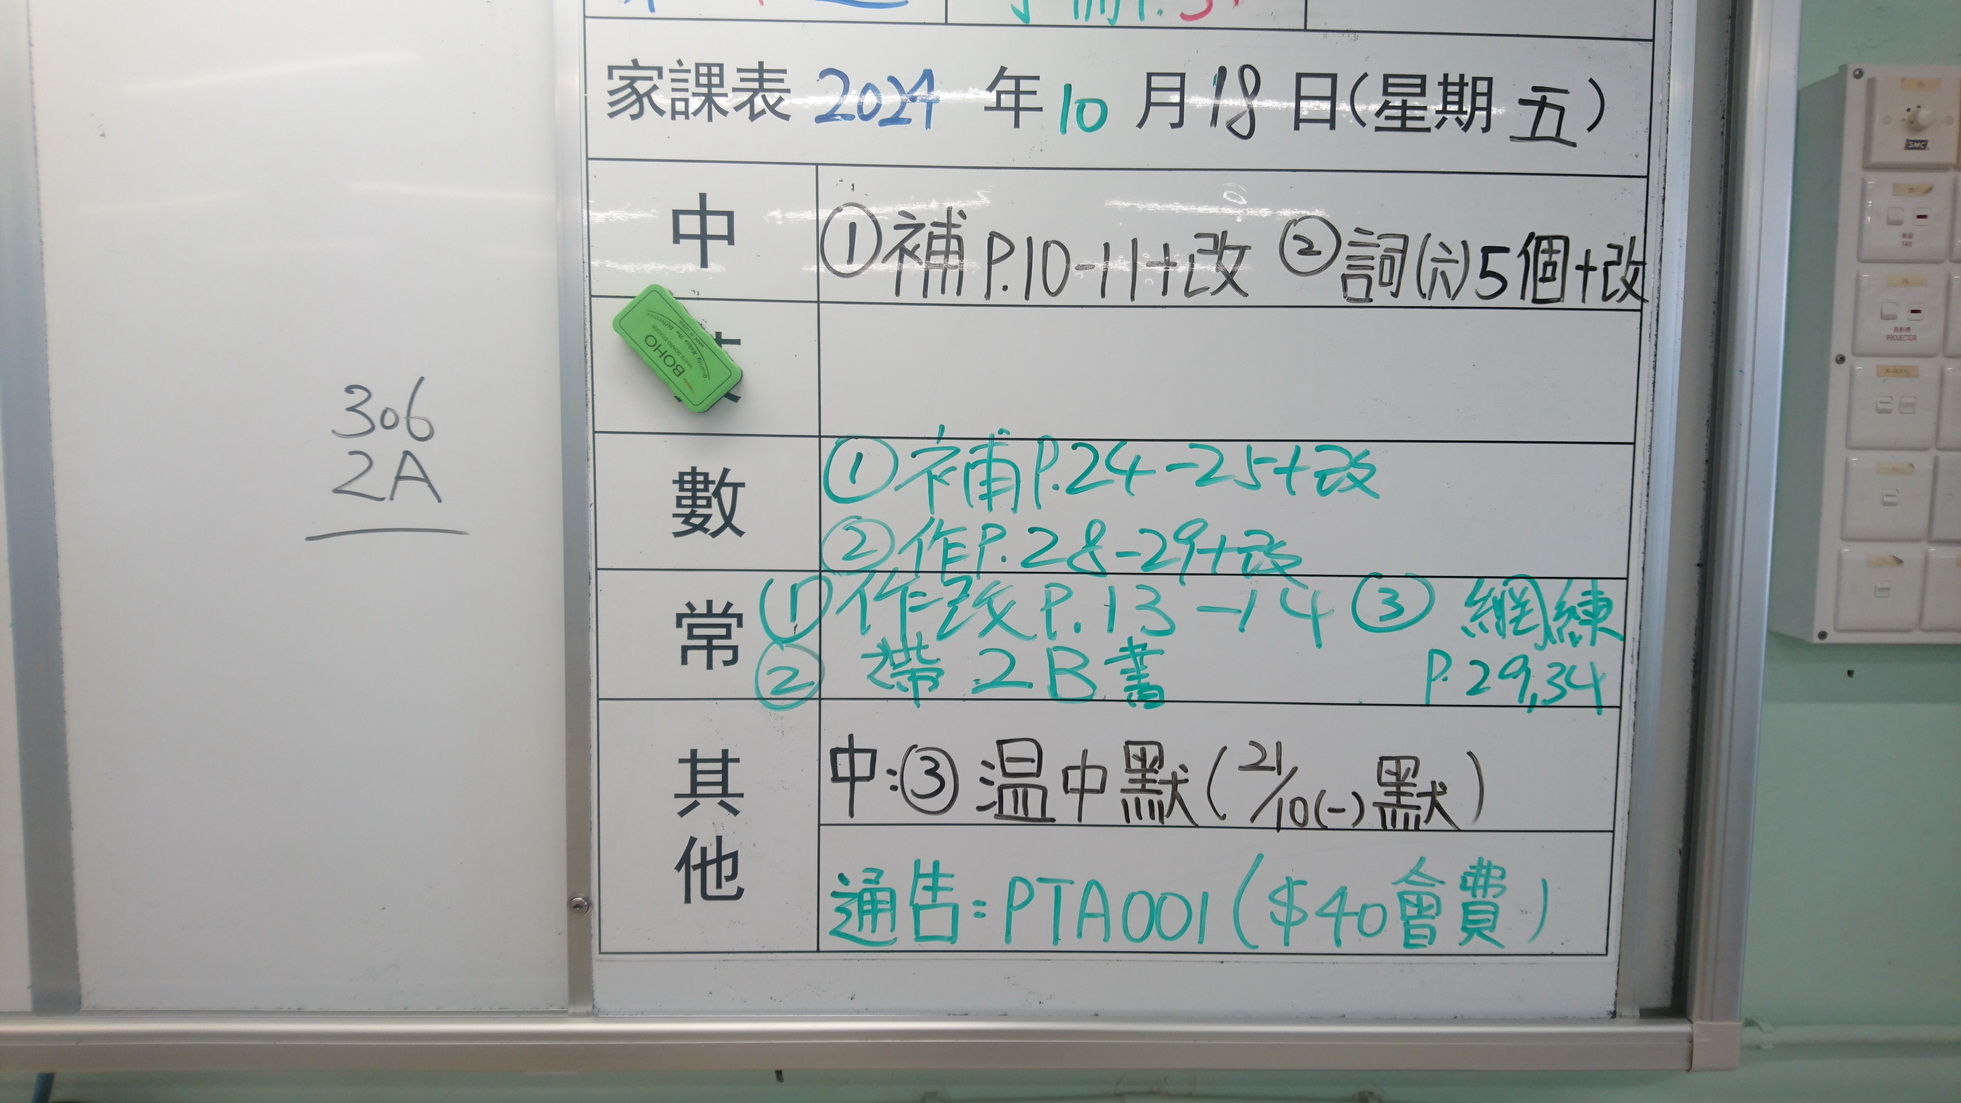 306
2A
家課表 2024 年 10 月 18 日(星期 五)
中
①補P.10-11+改 ②詞(六)5個+改
BOHO
數
①補P.24-25+改
②作P.28-29+改
常
①作改P.13-14 ③網練
②帶2B書 P.29,34
其他
中:③溫中默(21/10(一)默)
通告:PTA001($40會費)
PROJECTOR
SMC